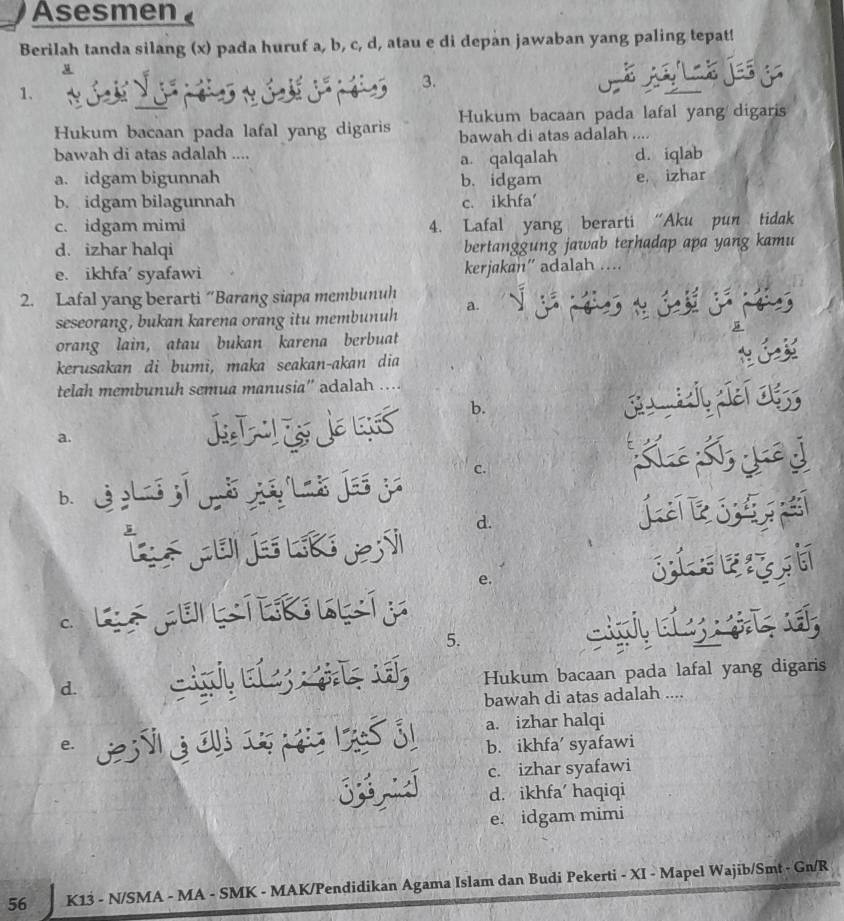 Asesmen
Berilah tanda silang (x) pada huruf a, b, c, d, atau e di depan jawaban yang paling tepat!
1. وَمِنْهُمْ مَّنْ يُّؤْمِنُ بِهٖ وَمِنْهُمْ مَّنْ لَّا يُؤْمِنُ بِهٖ
Hukum bacaan pada lafal yang digaris
bawah di atas adalah ....
a. idgam bigunnah
b. idgam bilagunnah
c. idgam mimi
d. izhar halqi
e. ikhfa’ syafawi
2. Lafal yang berarti “Barang siapa membunuh
seseorang, bukan karena orang itu membunuh
orang lain, atau bukan karena berbuat
kerusakan di bumi, maka seakan-akan dia
telah membunuh semua manusia” adalah ....
a. كَتَبْنَا عَلٰى بَنِيْٓ اِسْرَآءِيْلَ
b. مَنْ قَتَلَ نَفْسًاۢ بِغَيْرِ نَفْسٍ اَوْ فَسَادٍ فِى
الْاَرْضِ فَكَاَنَّمَا قَتَلَ النَّاسَ جَمِيْعًاۗ
c. مَنْ اَحْيَاهَا فَكَاَنَّمَآ اَحْيَا النَّاسَ جَمِيْعًا
d. وَلَقَدْ جَاۤءَتْهُمْ رُسُلُنَا بِالْبَيِّنٰتِ
e. اِنَّ كَثِيْرًا مِّنْهُمْ بَعْدَ ذٰلِكَ فِى الْاَرْضِ
لَمُسْرِفُوْنَ
3. مَنْ قَتَلَ نَفْسًاۢ بِغَيْرِ نَفْسٍ
Hukum bacaan pada lafal yang digaris
bawah di atas adalah ....
a. qalqalah
b. idgam
c. ikhfa’
d. iqlab
e. izhar
4. Lafal yang berarti “Aku pun tidak
bertanggung jawab terhadap apa yang kamu
kerjakan” adalah ....
a. وَمِنْهُمْ مَّنْ يُّؤْمِنُ بِهٖ وَمِنْهُمْ مَّنْ لَّا
يُؤْمِنُ بِهٖ
b. وَرَبُّكَ اَعْلَمُ بِالْمُفْسِدِيْنَ
c. لِّيْ عَمَلِيْ وَلَكُمْ عَمَلُكُمْۚ
d. اَنْتُمْ بَرِيْۤـُٔوْنَ مِمَّآ اَعْمَلُ
e. اَنَا۠ بَرِيْۤءٌ مِّمَّا تَعْمَلُوْنَ
5. وَلَقَدْ جَاۤءَتْهُمْ رُسُلُنَا بِالْبَيِّنٰتِ
Hukum bacaan pada lafal yang digaris
bawah di atas adalah ....
a. izhar halqi
b. ikhfa’ syafawi
c. izhar syafawi
d. ikhfa’ haqiqi
e. idgam mimi
56 K13 - N/SMA - MA - SMK - MAK/Pendidikan Agama Islam dan Budi Pekerti - XI - Mapel Wajib/Smt - Gn/R